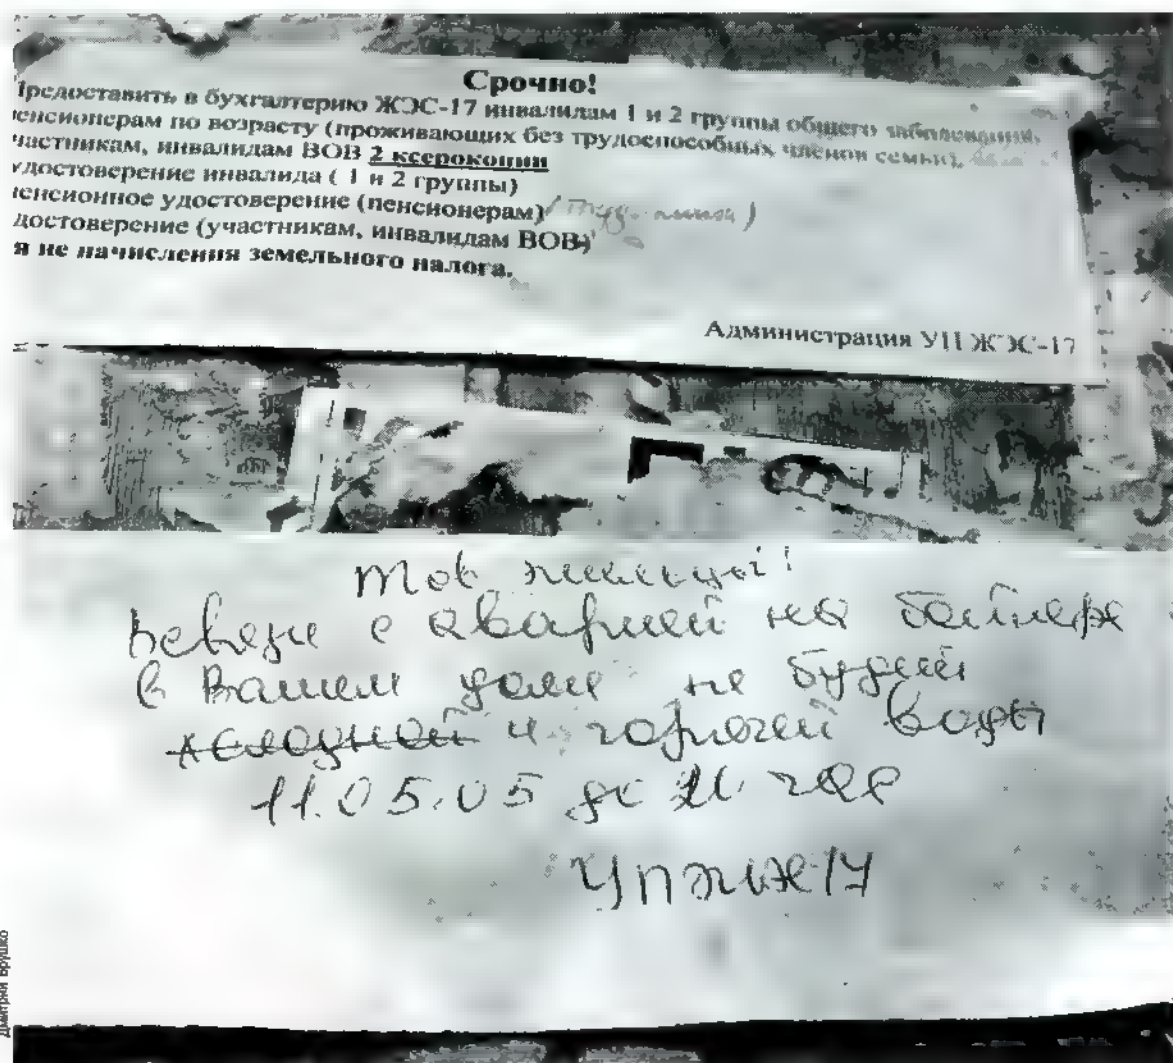 Срочно!
Предоставить в бухгалтерию ЖЭС-17 инвалидам 1 и 2 группы общего заболевания,
пенсионерам по возрасту (проживающих без трудоспособных членов семьи),
частникам, инвалидам ВОВ 2 ксерокопии
удостоверение инвалида ( 1 и 2 группы)
пенсионное удостоверение (пенсионерам)
достоверение (участникам, инвалидам ВОВ)
я не начисления земельного налога.
Администрация УП ЖЭС-17
Тов жильцы!
Всвязи с аварией на бойлере
в Вашем доме не будет
холодной и горячей воды
11.05.05 до 21 час
УП ЖЭС 17
Дмитрий Брушко